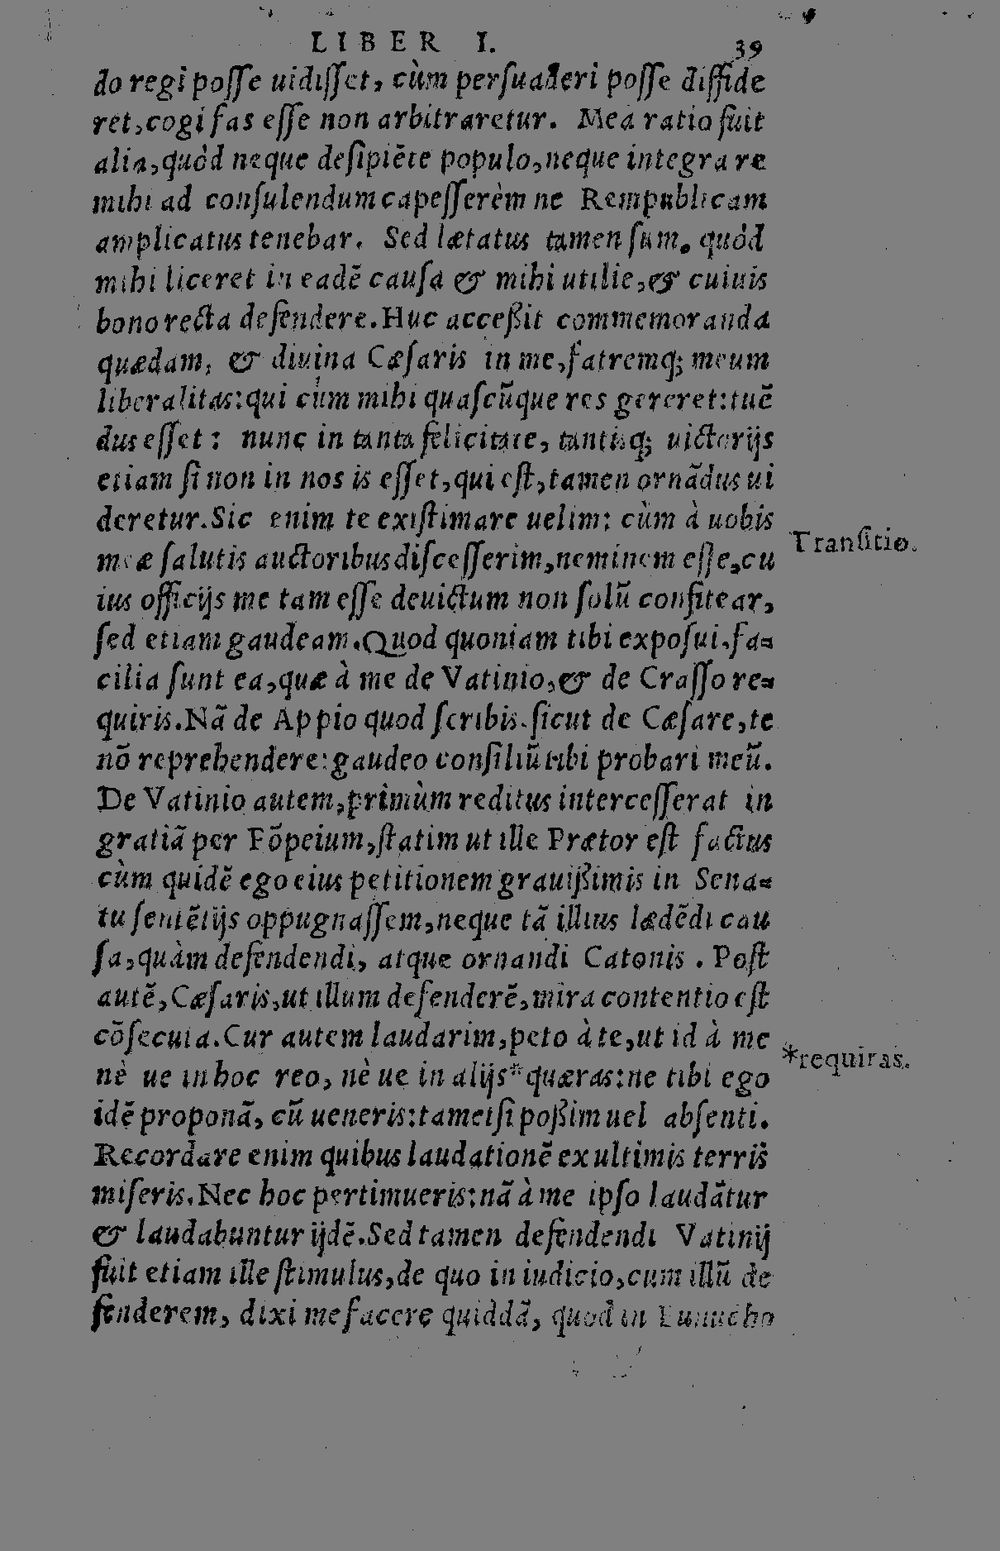 LIBER I. 39
do regi posse uidisset, cùm persuaderi posse diffide
ret, cogi fas esse non arbitraretur. Mea ratio fuit
alia, quòd neque desipiẽte populo, neque integra re
mihi ad consulendum capesserèm ne Rempublicam
amplicatus tenebar. Sed lætatus tamen sum, quòd
mihi liceret in eadẽ causa & mihi utilie, & cuiuis
bono recta defendere. Huc acceßit commemoranda
quædam, & diuina Cæsaris in me, fatremq; meum
liberalitas: qui cùm mihi quascũque res gereret: tuẽ
dus esset: nunc in tanta felicitate, tantisq; uictorijs
etiam si non in nos is esset, qui est, tamen ornãdus ui
deretur. Sic enim te existimare uelim: cùm à uobis
meæ salutis auctoribus discesserim, neminem esse, cu
Transitio.
ius officijs me tam esse deuictum non solũ confitear,
sed etiam gaudeam. Quod quoniam tibi exposui, fa-
cilia sunt ea, quæ à me de Vatinio, & de Crasso re-
quiris. Nã de Appio quod scribis. sicut de Cæsare, te
nõ reprehendere: gaudeo consiliũ tibi probari meũ.
De Vatinio autem, primùm reditus intercesserat in
gratiã per Põpeium, statim ut ille Prætor est factus
cùm quidẽ ego eius petitionem grauißimis in Sena-
tu sentẽtijs oppugnassem, neque tã illius lædẽdi cau
sa, quàm defendendi, atque ornandi Catonis. Post
autẽ, Cæsaris, ut illum defenderẽ, mira contentio est
cõsecuta. Cur autem laudarim, peto à te, ut id à me
nè ue in hoc reo, nè ue in alijs* quæras: ne tibi ego
*requiras.
idẽ proponã, cũ ueneris: tametsi poßim uel absenti.
Recordare enim quibus laudationẽ ex ultimis terris
miseris. Nec hoc pertimueris: nã à me ipso laudãtur
& laudabuntur ijdẽ. Sed tamen defendendi Vatinij
fuit etiam ille stimulus, de quo in iudicio, cum illũ de
fenderem, dixi me facere quiddã, quod in Eunucho